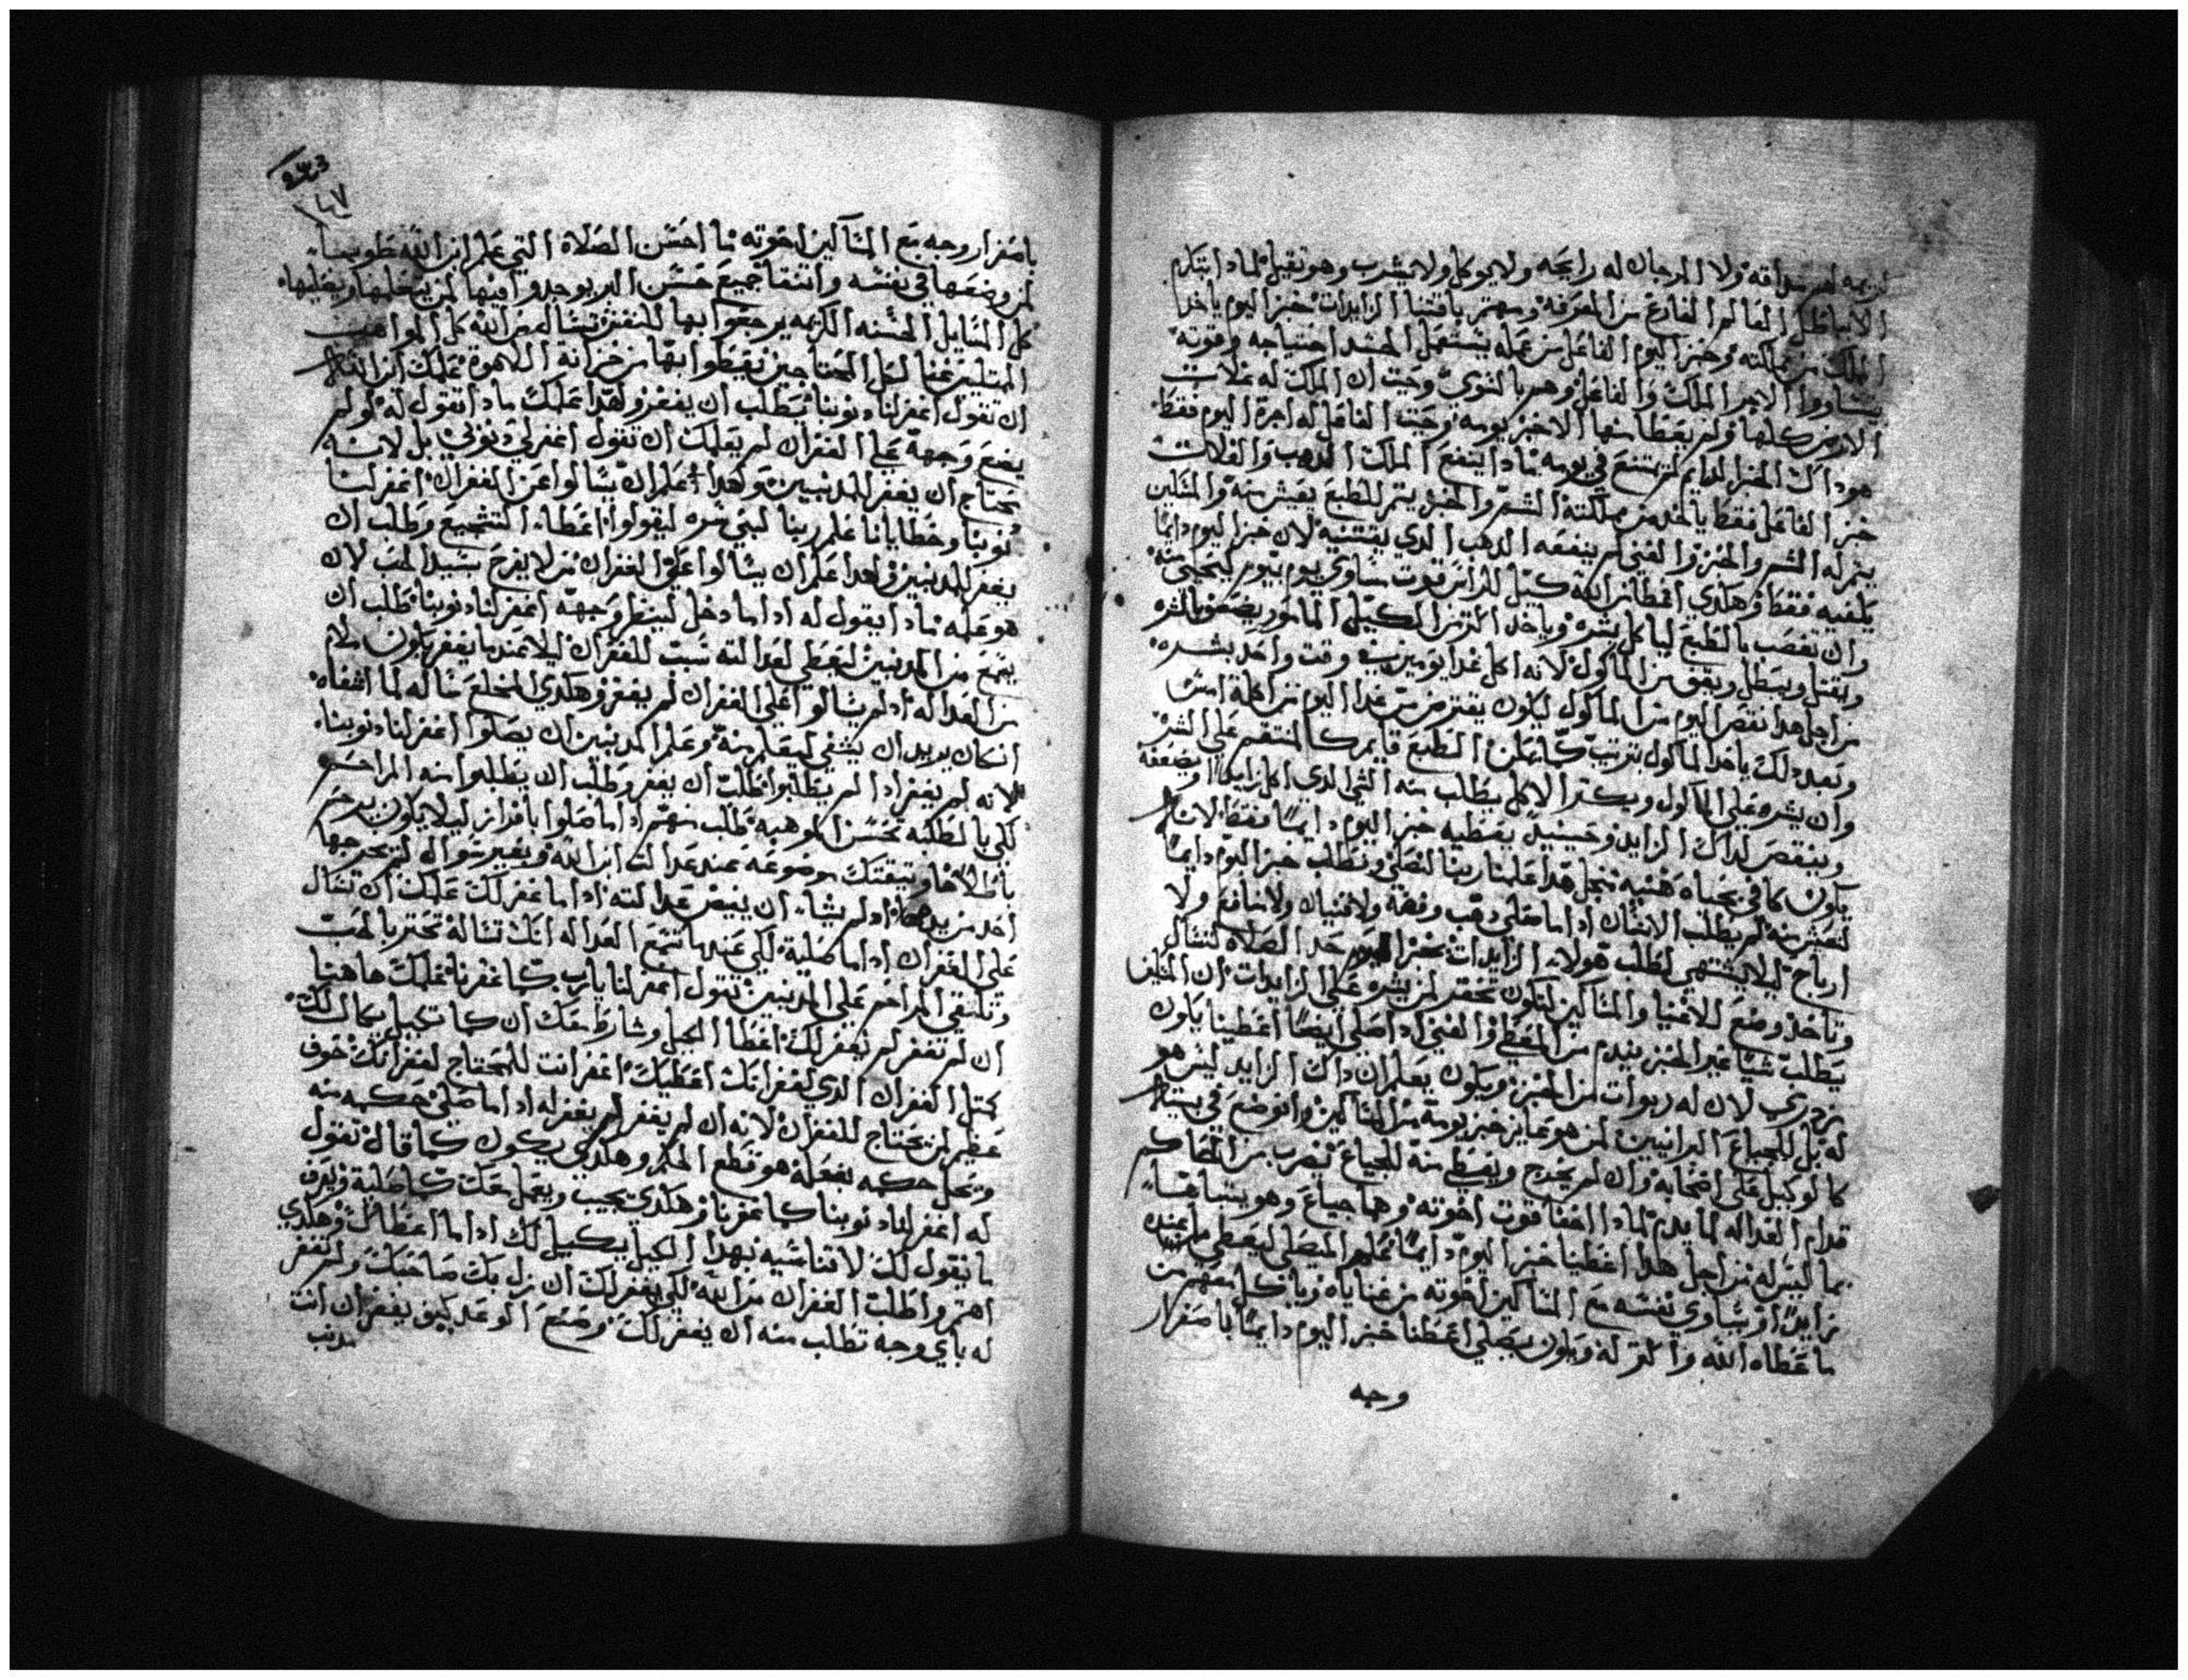 ولا المرجان له رايحه ولا يوكل ولا يشرب وهو تقيل لمادا
الاباطل العالم الفارغ من المعرفه ومهتم باقتنا الزايدات خبز اليوم ياخد
الملك من مملكته وخبز اليوم الفاعل من عمله يستعمل الجسد احتياجه وقوته
يتساووا الاجرا الملك والفاعل وهم بالنوي وحيت ان الملك له غلات
الارض كلها ولم يعطا منها الا خبز يومه وحيت الفاعل له اجرة اليوم فقط
هوداك الخبز الدايم لم يمتنع في يومه مادا ينفع الملك الدهب والغلات
خبز الفاعل فقط ياخد من مملكته الشره والخبز يتم للطبع يعيش منه والمسكين
يتم له الشره والخبز والغني لم ينفعه الدهب الدي يقتنيه لان خبز اليوم دايما
يكفيه فقط وهكدي اعطا من الله كيل للراس قوت ساوي يوم بيوم ليحيي منه
وان تغصب بالطبع لياكل بشره وياخد اكتر من الكيل المامور يضعف بالشره
ويقتل ويبطل ويعوق من الماكول لانه اكل غدا يومين في وقت واحد بشره
من اجل هدا نقص اليوم من الماكول ليكون يقترض من غدا اليوم من اكلة امس
وبعد دلك ياخد الماكول بترتيب كيل الطبع قايم كالمنتقم علي الشره
وان يشره علي الماكول ويكتر الاكل يطلب منه الشي الدي اكل زايدا ويضعفه
وينقص لداك الزايد وحينيد يعطيه خبز اليوم دايما فقط لانه
يكون كافي بحياه هنيه من اجل هدا علمنا ربنا لنصلي ونطلب خبز اليوم دايما
لنعيش منه لم يطلب الانسان اداما صلي دهب وفضه ولا قنيان ولا منافع ولا
ارباح ليلا يشتهي لطلب هولاء الزايدات بخبز اليوم حد الصلاه لتسال
وتاخد وضع للاغنيا والمساكين لتكون تحقر لمن يشره علي الزايدات ان المسكين
يطلب شيا غير الخبز يندم من المعطي والغني اداصلي ايضا اعطينا يكون
مزدري لان له ربوات من الخبز ويكون يعلم ان داك الزايد ليس هو
له بل للجياع البرانيين لمن هو عايز خبز يومه من المساكين وانوضع في بيته
كالوكيل علي اصحابه وان لم يخرج ويعط منه للجياع يضرب من الحاكم
قدام العداله لما يدم لمادا اخفا قوت اخوته وهما جياع وهو يتباهتا
بما ليس له من اجل هدا اعطينا خبز اليوم دايما علم المصلي ليعطي ما عنده
زايدا ويساوي نفسه مع المساكين اخوته من غناياه وياكل معهم من
ما عطاه الله واكتر له ويكون يصلي اعطنا خبز اليوم دايما باسفرار
وجه
243
١٤٧
باسفرار وجه مع المساكين اخوته ما احسن الصلاه التي علم ابن الله طوبينا
لمن وضعها في نفسه واتنقا جميع حسن الدي يوجدوا فيها لمن يتعلمها ويصليها
كل المسايل الحسنه الكريمه يرجعوا بها للنفس تساله من الله كل المواهب
الممتليه غنا لكل المحتاجين يعطوا بها من خزانة اللاهوة علمك ابن الله
ان تقول اغفر لنا دنوبنا يطلب ان يغفر ولهدا علمك مادا تقول له لو لم
يضع وجهة علي الغفران لم يعلمك ان تقول اغفر لي دنوبي بل لانه
يحتاج ان يغفر للمدنبين وكهدا علم ان يسالوا عن الغفران اغفر لنا
دنوبنا وخطايانا علم ربنا لبني شره ليقولوا اعطاء التشجيع وطلب ان
يغفر للمدنبين ولهدا علم ان يسالوا علي الغفران من لا يفرح بسيد الحب لان
هو علمه مادا يقول له اداما دخل لينظر وجهه اغفر لنا دنوبنا طلب ان
يجمع من المدنبين ليعطي لعدالته سبب للغفران ليلا عندما يغفر يكون ملام
من العداله اد لم يسالوا علي الغفران لم يغفر وهكدي المخلع ساله لما اشفاه
انكان يريد ان يشفي ليتعلم منه وعلم المدنبين ان يصلوا اغفر لنا دنوبنا
لانه لم يغفر ادا لم يطلبوا طلب ان يغفر وطلب ان يطلبوا منه المراحم
لكي بالطلبه تحسن الموهبه طلب منهم اداما صلوا بافراز ليلا يكون يرحم
باطلا هاوتيقتك موضوعه عند عدالت ابن الله وبغير سوال لم يخرجها
احد من يدها اد لم يشاء ان يغيض عدالته اداما غفر لك علمك ان تسال
علي الغفران اداما صليه لكي عندما تسمع العداله انك تساله تحترم بالحب
وتلتقي المراحم علي المدنبين تقول اغفر لنا يارب كما غفرنا علمك هاهنا
ان لم تغفر لم نغفر لك اعطا الكيل وشارط معك ان كما تكيل يكال لك
كمتل الغفران الدي لغفرانك اعطيك اغفر انت للمحتاج لغفرانك خوف
عظيم لمن يحتاج للغفران لانه ان لم يغفر لم يغفر له اداما صلي حكمه منه
وتحل حكمه بفعله هو قطع الحكم وهكدي يكون كما قال تقول
له اغفر لنا دنوبنا كما غفرنا وهكدي يجيب ويعمل معك كما صلية ويعرف
ما يقول لك لا تناسيه بهدا الكيل يكيل لك اداما اعطاك وهكدي
اهتم واطلب الغفران من الله لكي يغفر لك ان زل بك صاحبك ولم تغفر
له باي وجه تطلب منه ان يغفر لك وضع الوعد كيف يغفر ان انت
مدنب